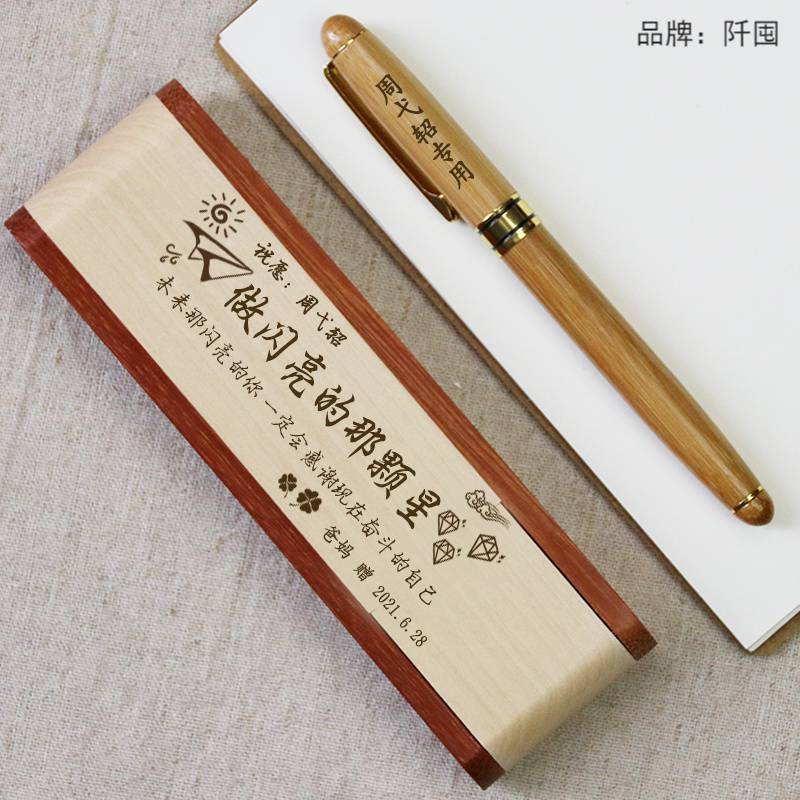 品牌：阡囤
周弋轺专用
祝愿：周弋轺
做闪亮的那颗星
未来那闪亮的你一定会感谢现在奋斗的自己
爸妈 赠 2021.6.28